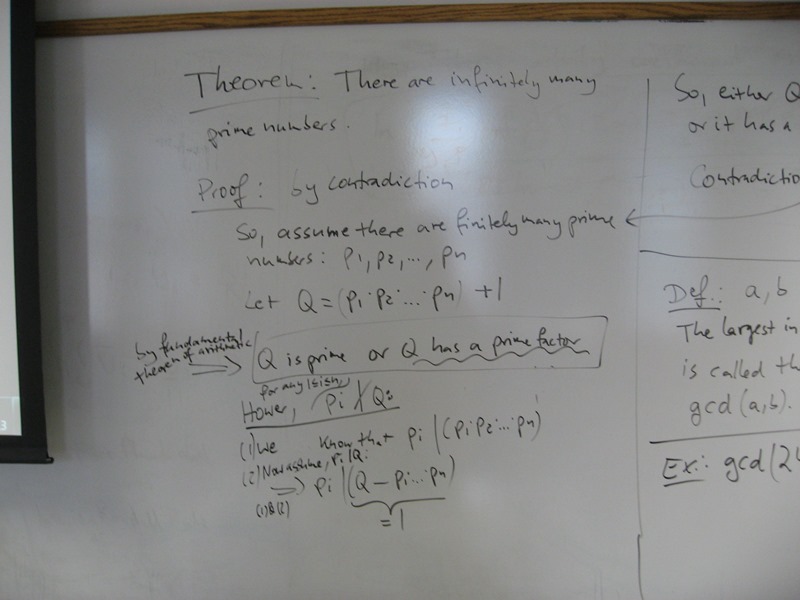 Theorem: There are infinitely many
prime numbers.
Proof: by contradiction
So, assume there are finitely many prime
numbers: p1, p2, ..., pn
Let Q = (p1·p2·...·pn) + 1
by fundamental
theorem of arithmetic
Q is prime or Q has a prime factor
for any 1≤i≤n,
Hower, pi ∤ Q:
(1) We know that pi | (p1·p2·...·pn)
(2) Now assume, pi | Q:
⇒ pi | (Q - p1·...·pn)
(1)&(2)
= 1
So, either Q
or it has a
Contradictio
Def.: a, b
The largest in
is called th
gcd (a,b).
Ex.: gcd (24
3